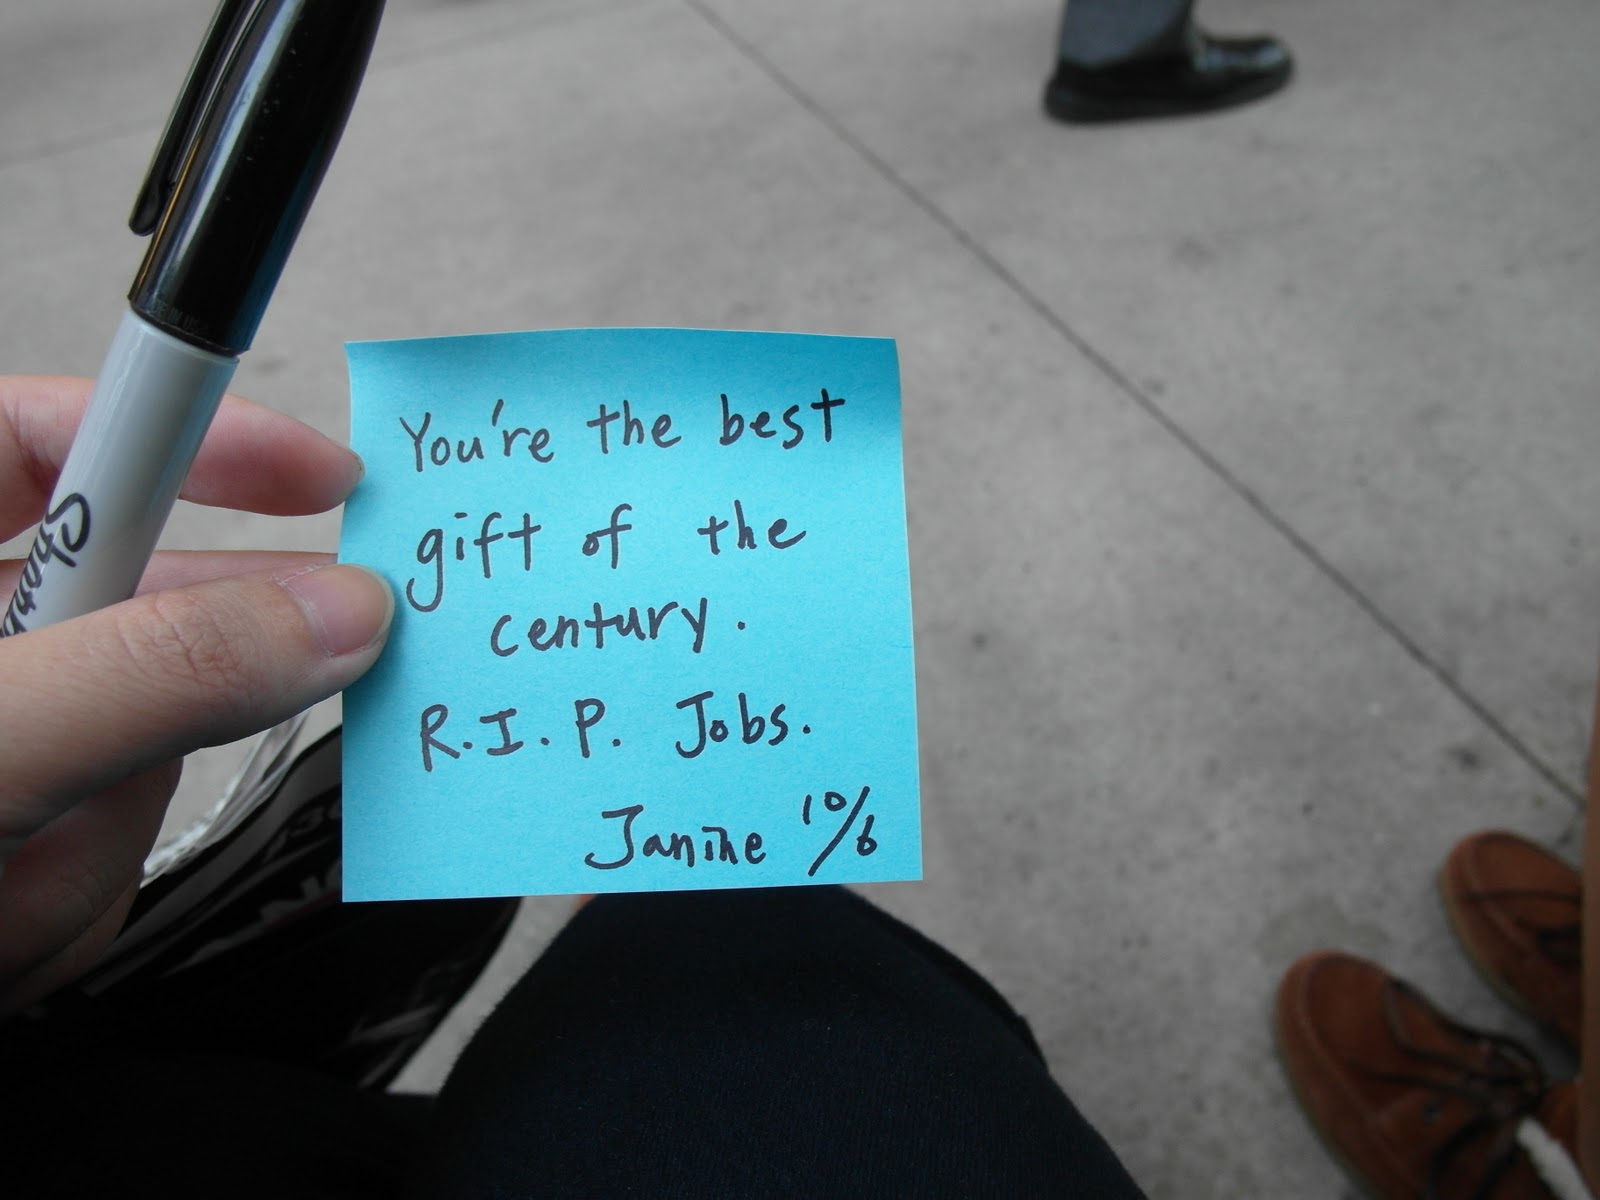 You're the best
gift of the
century.
R.I.P. Jobs.
Janine 10/6